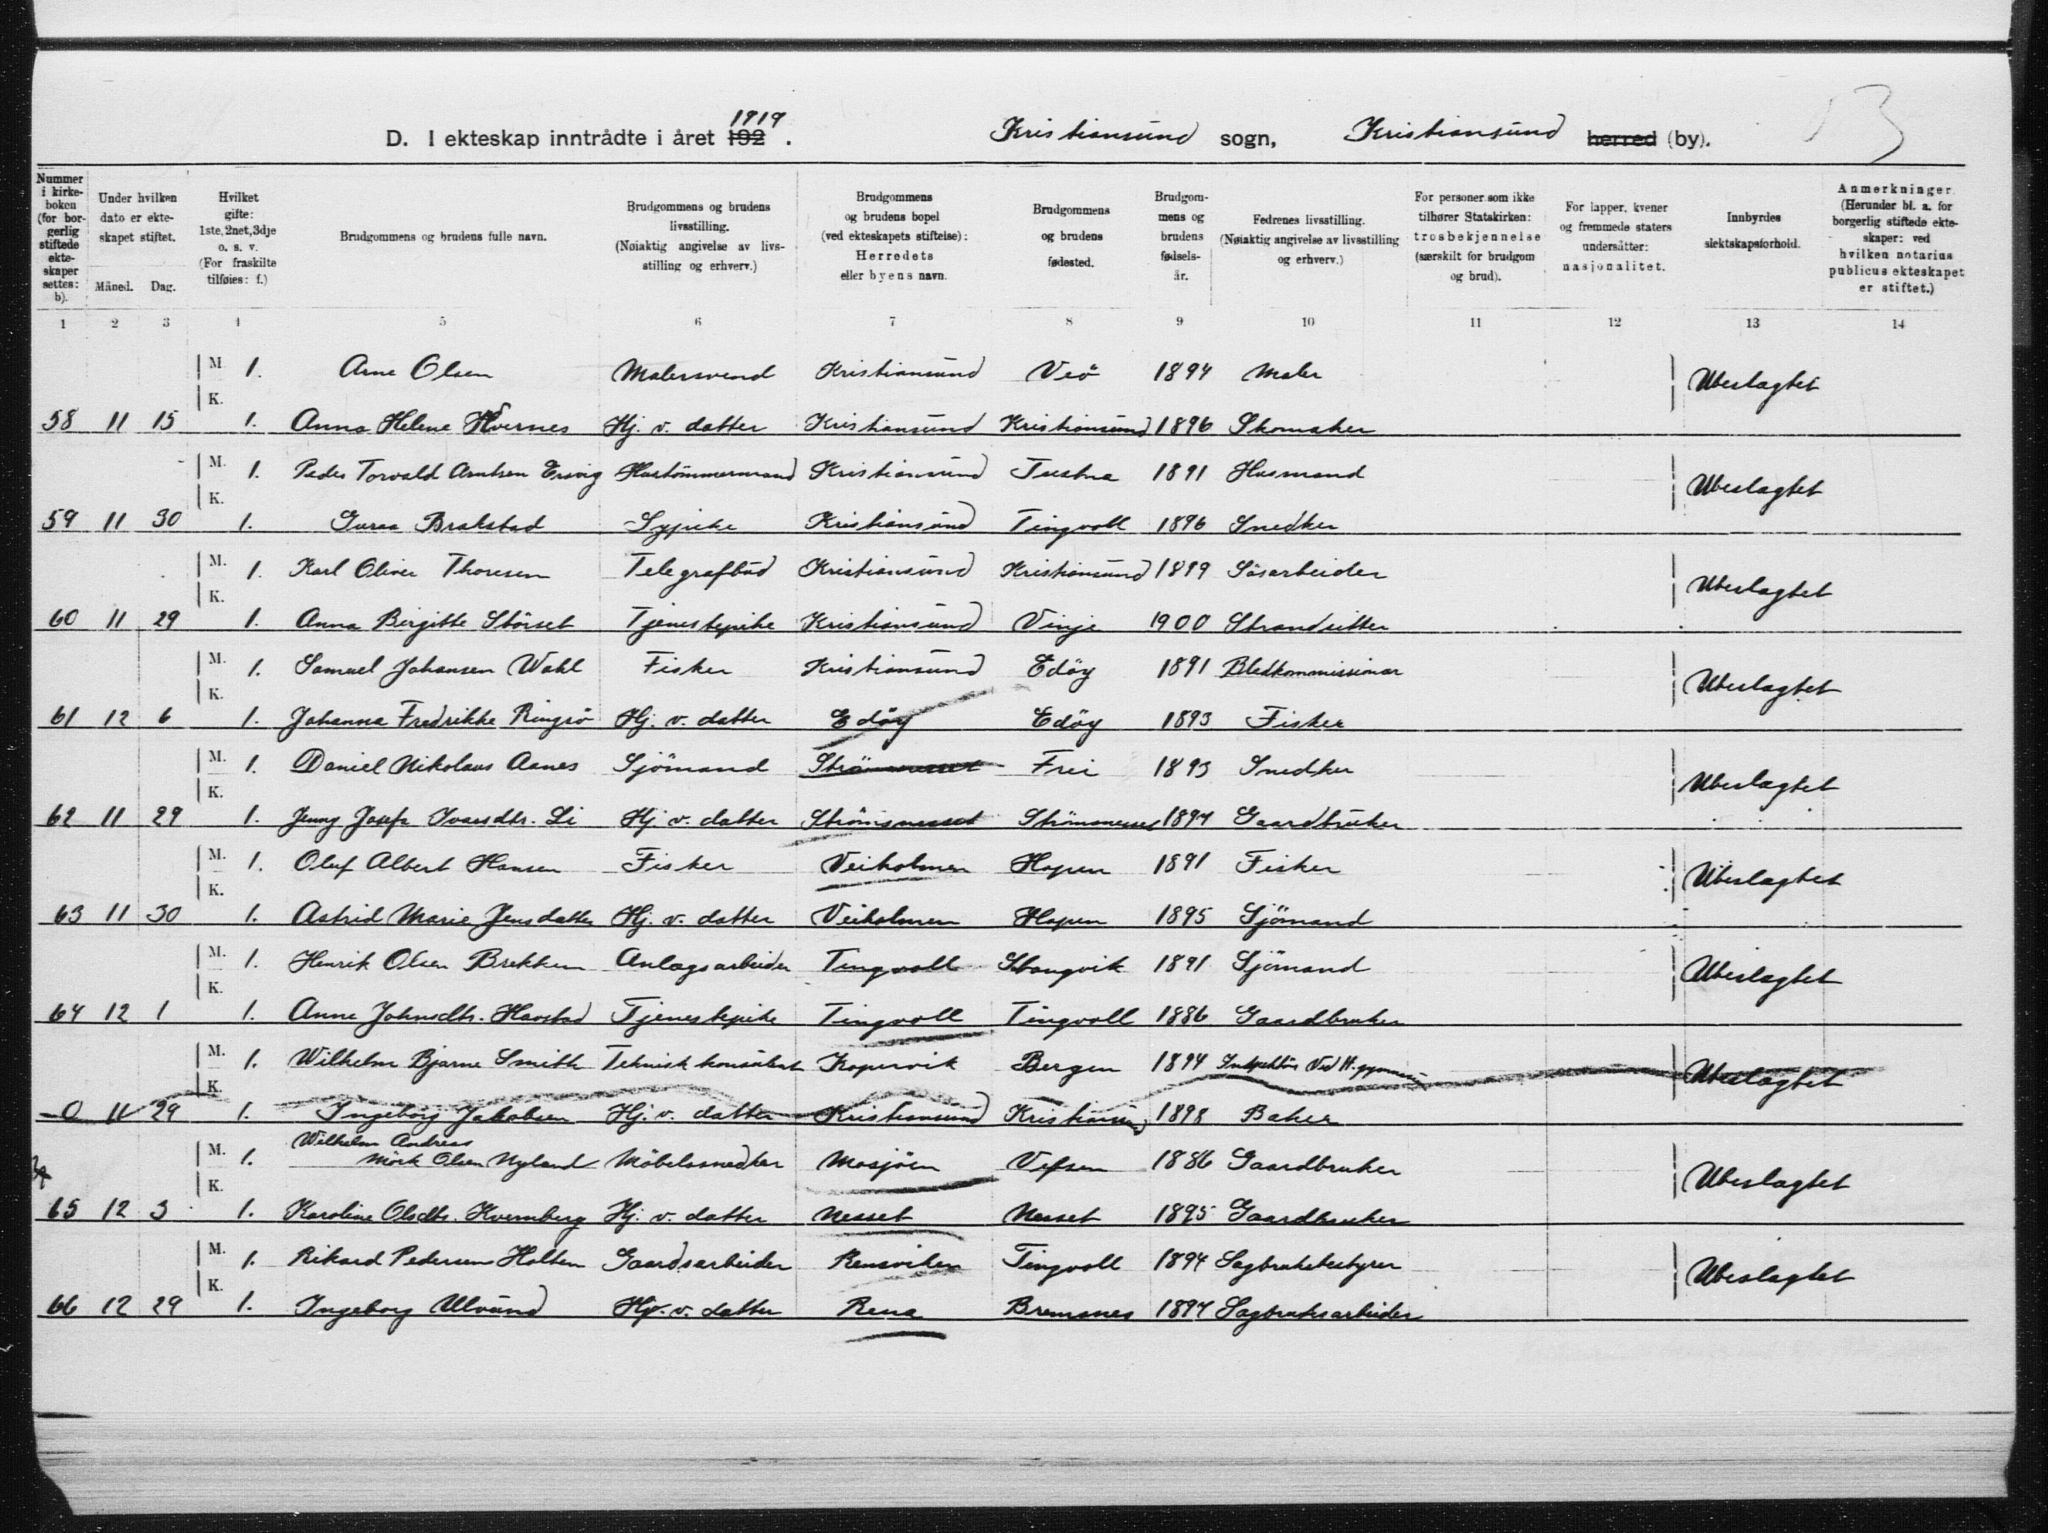 1919
D. I ekteskap inntrådte i året 192 . Kristiansund sogn, Kristiansund herred (by). 13
Nummer i kirke-boken (for bor-gerlig stiftede ekte-skaper settes: b).
Under hvilken dato er ekte-skapet stiftet.
Måned. Dag.
Hvilket gifte: 1ste, 2net, 3dje o. s. v. (For fraskilte tilføies: f.)
Brudgommens og brudens fulle navn.
Brudgommens og brudens livsstilling. (Nøiaktig angivelse av livs-stilling og erhverv.)
Brudgommens og brudens bopel (ved ekteskapets stiftelse): Herredets eller byens navn.
Brudgommens og brudens fødested.
Brudgom-mens og brudens fødsels-år.
Fedrenes livsstilling. (Nøiaktig angivelse av livsstilling og erhverv.)
For personer som ikke tilhører Statskirken: trosbekjennelse (særskilt for brudgom og brud).
For lapper, kvener og fremmede staters undersåtter: nasjonalitet.
Innbyrdes slektskapsforhold.
Anmerkninger. (Herunder bl. a. for borgerlig stiftede ekte-skaper: ved hvilken notarius publicus ekteskapet er stiftet.)
1 2 3 4 5 6 7 8 9 10 11 12 13 14
M. 1. Arne Olsen Malersvend Kristiansund Veö 1894 Maler Ubeslagtet
K.
58 11 15 1. Anna Helene Hvernes Hj. v. datter Kristiansund Kristiansund 1896 Skomaker
M. 1. Peder Torvald Arntsen Ervig Hustömmermand Kristiansund Tustna 1891 Husmand Ubeslagtet
K.
59 11 30 1. Guraa Brakstad Sypike Kristiansund Tingvoll 1896 Snedker
M. 1. Karl Oliver Thoresen Telegrafbud Kristiansund Kristiansund 1899 Sösarbeider Ubeslagtet
K.
60 11 29 1. Anna Birgitte Störset Tjenestepike Kristiansund Vinje 1900 Strandsitter
M. 1. Samuel Johansen Wahl Fisker Kristiansund Edöy 1891 Bladkommissionær Ubeslagtet
K.
61 12 6 1. Johanna Fredrikke Ringsö Hj. v. datter Edöy Edöy 1893 Fisker
M. 1. Daniel Nikolaus Aanes Sjömand Strömsneset Frei 1893 Snedker Ubeslagtet
K.
62 11 29 1. Jenny Josefa Ivarsdtr. Li Hj. v. datter Strömsnesset Strömsneset 1894 Gaardbruker
M. 1. Oluf Albert Hansen Fisker Veiholmen Hopen 1891 Fisker Ubeslagtet
K.
63 11 30 1. Astrid Marie Jensdatter Hj. v. datter Veiholmen Hopen 1895 Sjömand
M. 1. Henrik Olsen Brekken Anlagsarbeider Tingvoll Stangvik 1891 Sjömand Ubeslagtet
K.
64 12 1 1. Anne Johnsdtr. Havstad Tjenestepike Tingvoll Tingvoll 1886 Gaardbruker
M. 1. Wilhelm Bjarne Smith Teknisk konsulent Kopervik Bergen 1894 Inspektör ved Ubeslagtet
K.
0 11 29 1. Ingeborg Jakobsen Hj. v. datter Kristiansund Kristiansund 1898 Baker
Wilhelm Andreas
M. 1. Mörk Olsen Nyland Möbelsnedker Mosjöen Vefsen 1886 Gaardbruker Ubeslagtet
K.
65 12 3 1. Karoline Olsdtr. Kvernberg Hj. v. datter Nesset Nesset 1895 Gaardbruker
M. 1. Rikard Pedersen Holten Gaardsarbeider Rensviken Tingvoll 1894 Sagbruksbestyrer Ubeslagtet
K.
66 12 29 1. Ingeborg Ulvund Hj. v. datter Rena Bremsnes 1894 Sagbruksarbeider